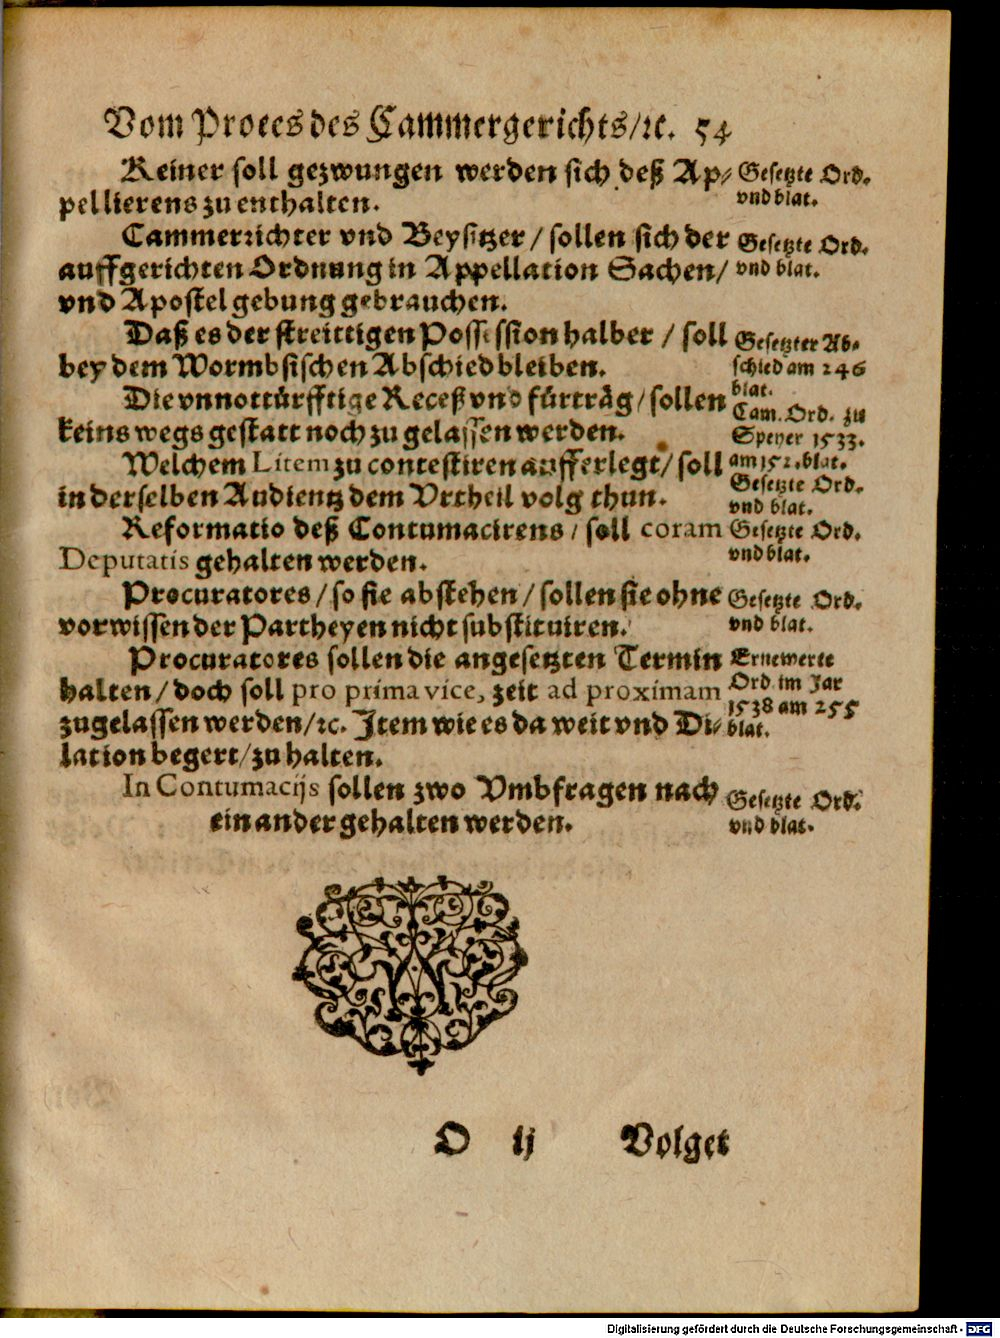 Vom Proces des Cammergerichts/ꝛc. 54
Keiner soll gezwungen werden sich deß Ap⸗
pellierens zu enthalten.
Gesetzte Ord.
vnd blat.
Cammerrichter vnd Beysitzer / sollen sich der
auffgerichten Ordnung in Appellation Sachen/
vnd Apostel gebung gebrauchen.
Gesetzte Ord.
vnd blat.
Daß es der streittigen Possession halber / soll
bey dem Wormbsischen Abschied bleiben.
Gesetzter Ab⸗
schied am 246
blat.
Die vnnottürfftige Receß vnd fürträg/sollen
keins wegs gestatt noch zu gelassen werden.
Cam. Ord. zu
Speyer 1533.
am 152. blat.
Welchem Litem zu contestiren aufferlegt/ soll
in derselben Audientz dem Vrtheil volg thun.
Gesetzte Ord.
vnd blat.
Reformatio deß Contumacirens / soll coram
Deputatis gehalten werden.
Gesetzte Ord.
vnd blat.
Procuratores / so sie abstehen / sollen sie ohne
vorwissen der Partheyen nicht substituiren.
Gesetzte Ord.
vnd blat.
Procuratores sollen die angesetzten Termin
halten / doch soll pro prima vice, zeit ad proximam
zugelassen werden/ꝛc. Item wie es da weit vnd Di⸗
lation begert/zu halten.
Ernewerte
Ord im Jar
1538 am 255
blat.
In Contumacijs sollen zwo Vmbfragen nach
einander gehalten werden.
Gesetzte Ord.
vnd blat.
O ij Volget
Digitalisierung gefördert durch die Deutsche Forschungsgemeinschaft - DFG